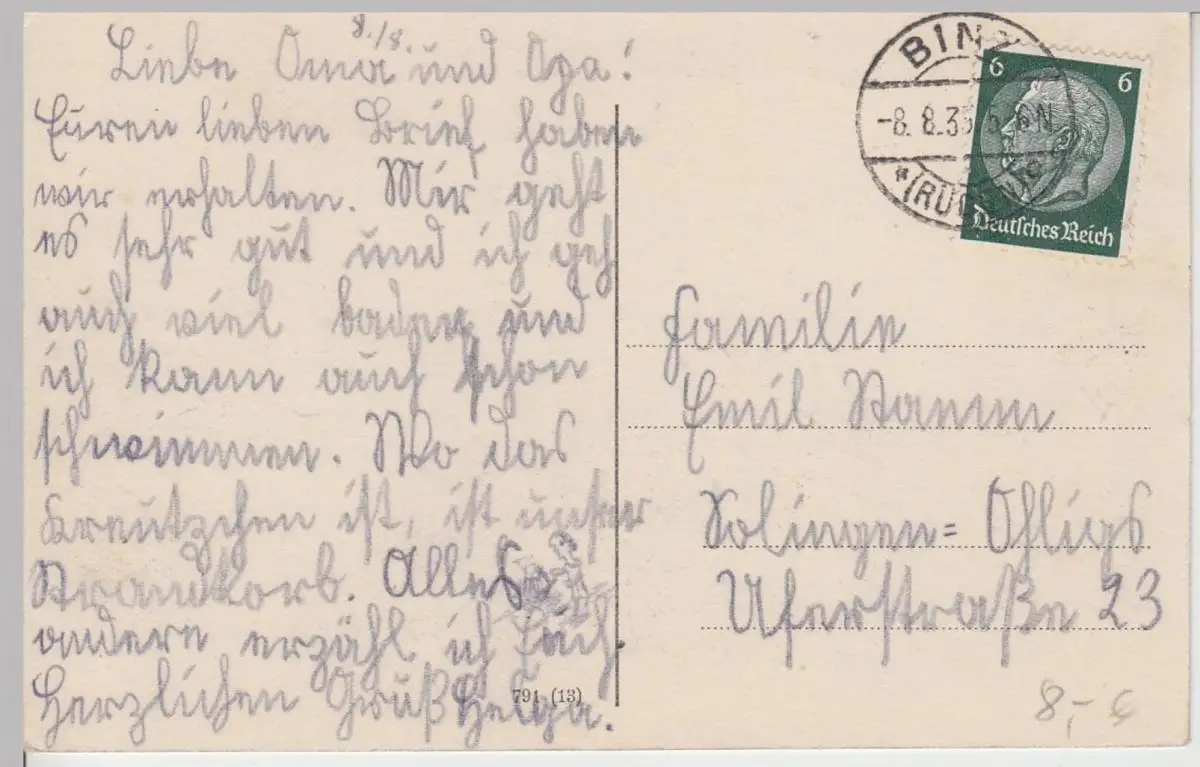 8./8.
Liebe Oma und Opa!
Euren lieben Brief haben
wir erhalten. Mir geht
es sehr gut und ich geh
auch viel baden und
ich kann auch schon
schwimmen. Wo das
Kreutzchen ist, ist unser
Strandkorb. Alles
andere erzähl ich Euch.
Herzlichen Gruß Helga.
791 (13)
BINZ
-8. 8. 35 5-6N
*(RÜGEN)
6 6
Deutsches Reich
Familie
Emil Stamm
Solingen=Ohligs
Uferstraße 23
8,-